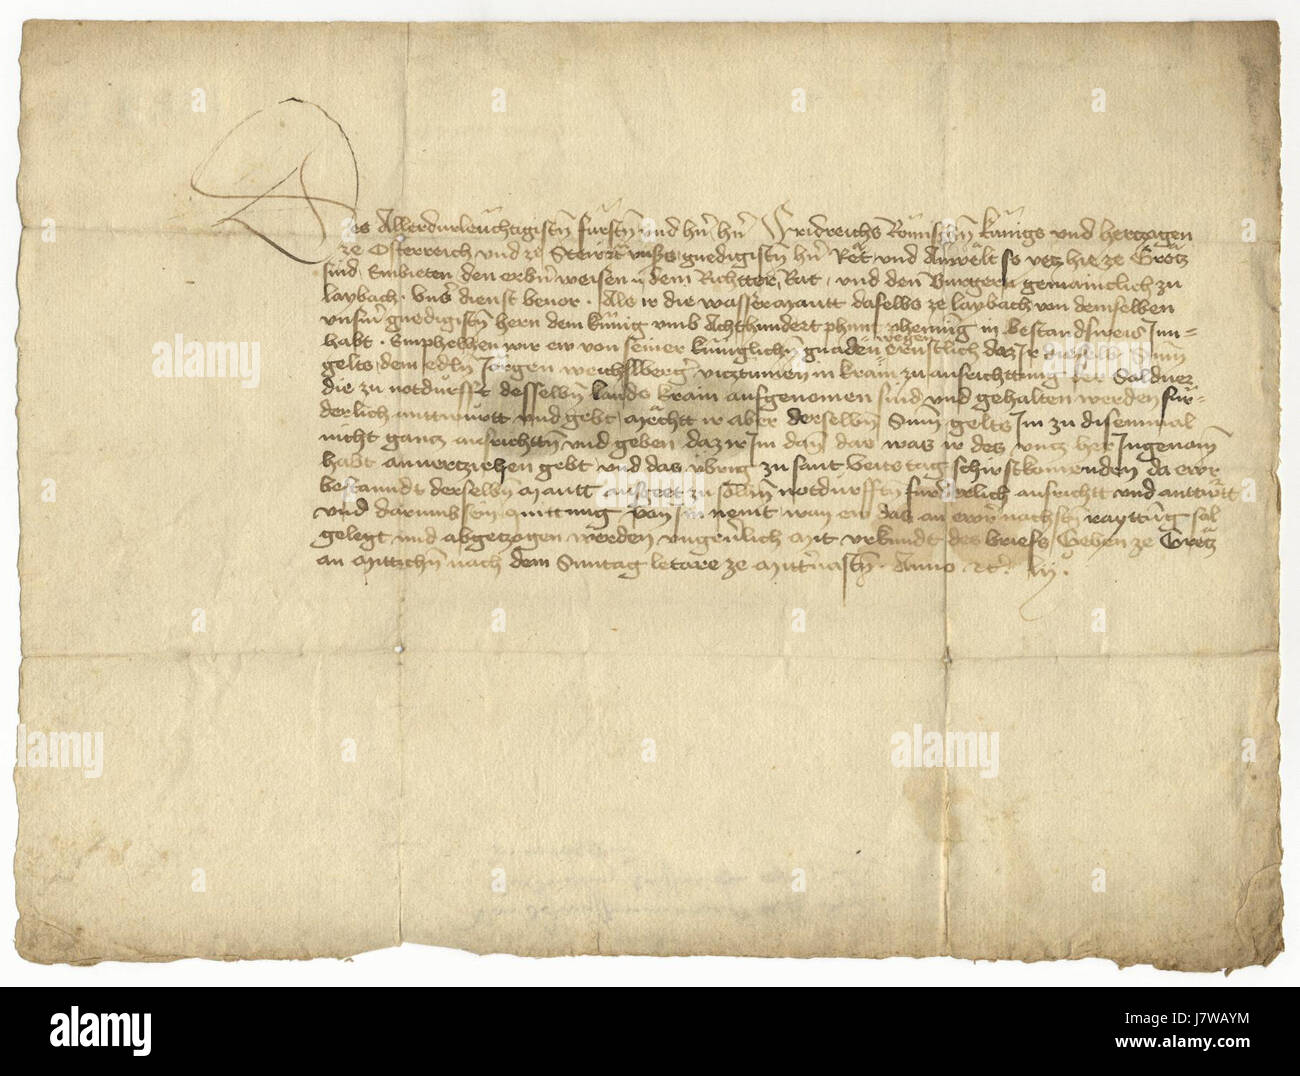 Des Allerdurleuchtigistn fürstn und hrn hrn Fridreichs Römischn künigs und herczogen
ze Österreich und ze Steir etc unsers gnedigistn hrn Rët und Anwëlt so yetz hie ze Grëtz
sind, Embieten den erbrn weisen n dem Richtter, Rat, und den Burgern gemainclich zu
laybach. Unser dienst bevor. Als ir die wassermautt daselbs ze laybach von demselben
unserm gnedigistn hern dem künig umb Achthundert phunt phening in bestandsweis Inn-
habt. Emphelhen wir ew von seiner küniglichn gnaden wegen ernstlich daz Ir dieselb Summ
gelts, dem edln Jörgen weichslberg viztumen in krain zu ausrichttung der Soldner
die zu notdurfft desselbn lands krain aufgenomen sind und gehalten werden für-
derlich anttwurtt und gebt, möchtt ir aber derselbn Summ gelts Im zu disem mal
nicht gancz ausrichttn und geben daz ir Im dann daz was ir des uncz her Ingenom
habt an verziehen gebt und das übrig zu sant veits tag schirstkomenden da ewr
bestanndt derselbn mautt ausgeet zu solhn notdurfftn fürderlich ausrichtt und anttwurtt
und darumb sein quittung von im nemt, wan ew das an ewrr nachstn rayttung sol
gelegt und abgeczogen werden ungeverlich Mit urkundt des briefs Geben ze Grëtz
an Mittichn nach dem Sunntag letare ze Mittervastn. Anno etc. lij.
alamy
alamy
Image ID: J7WAYM
www.alamy.com